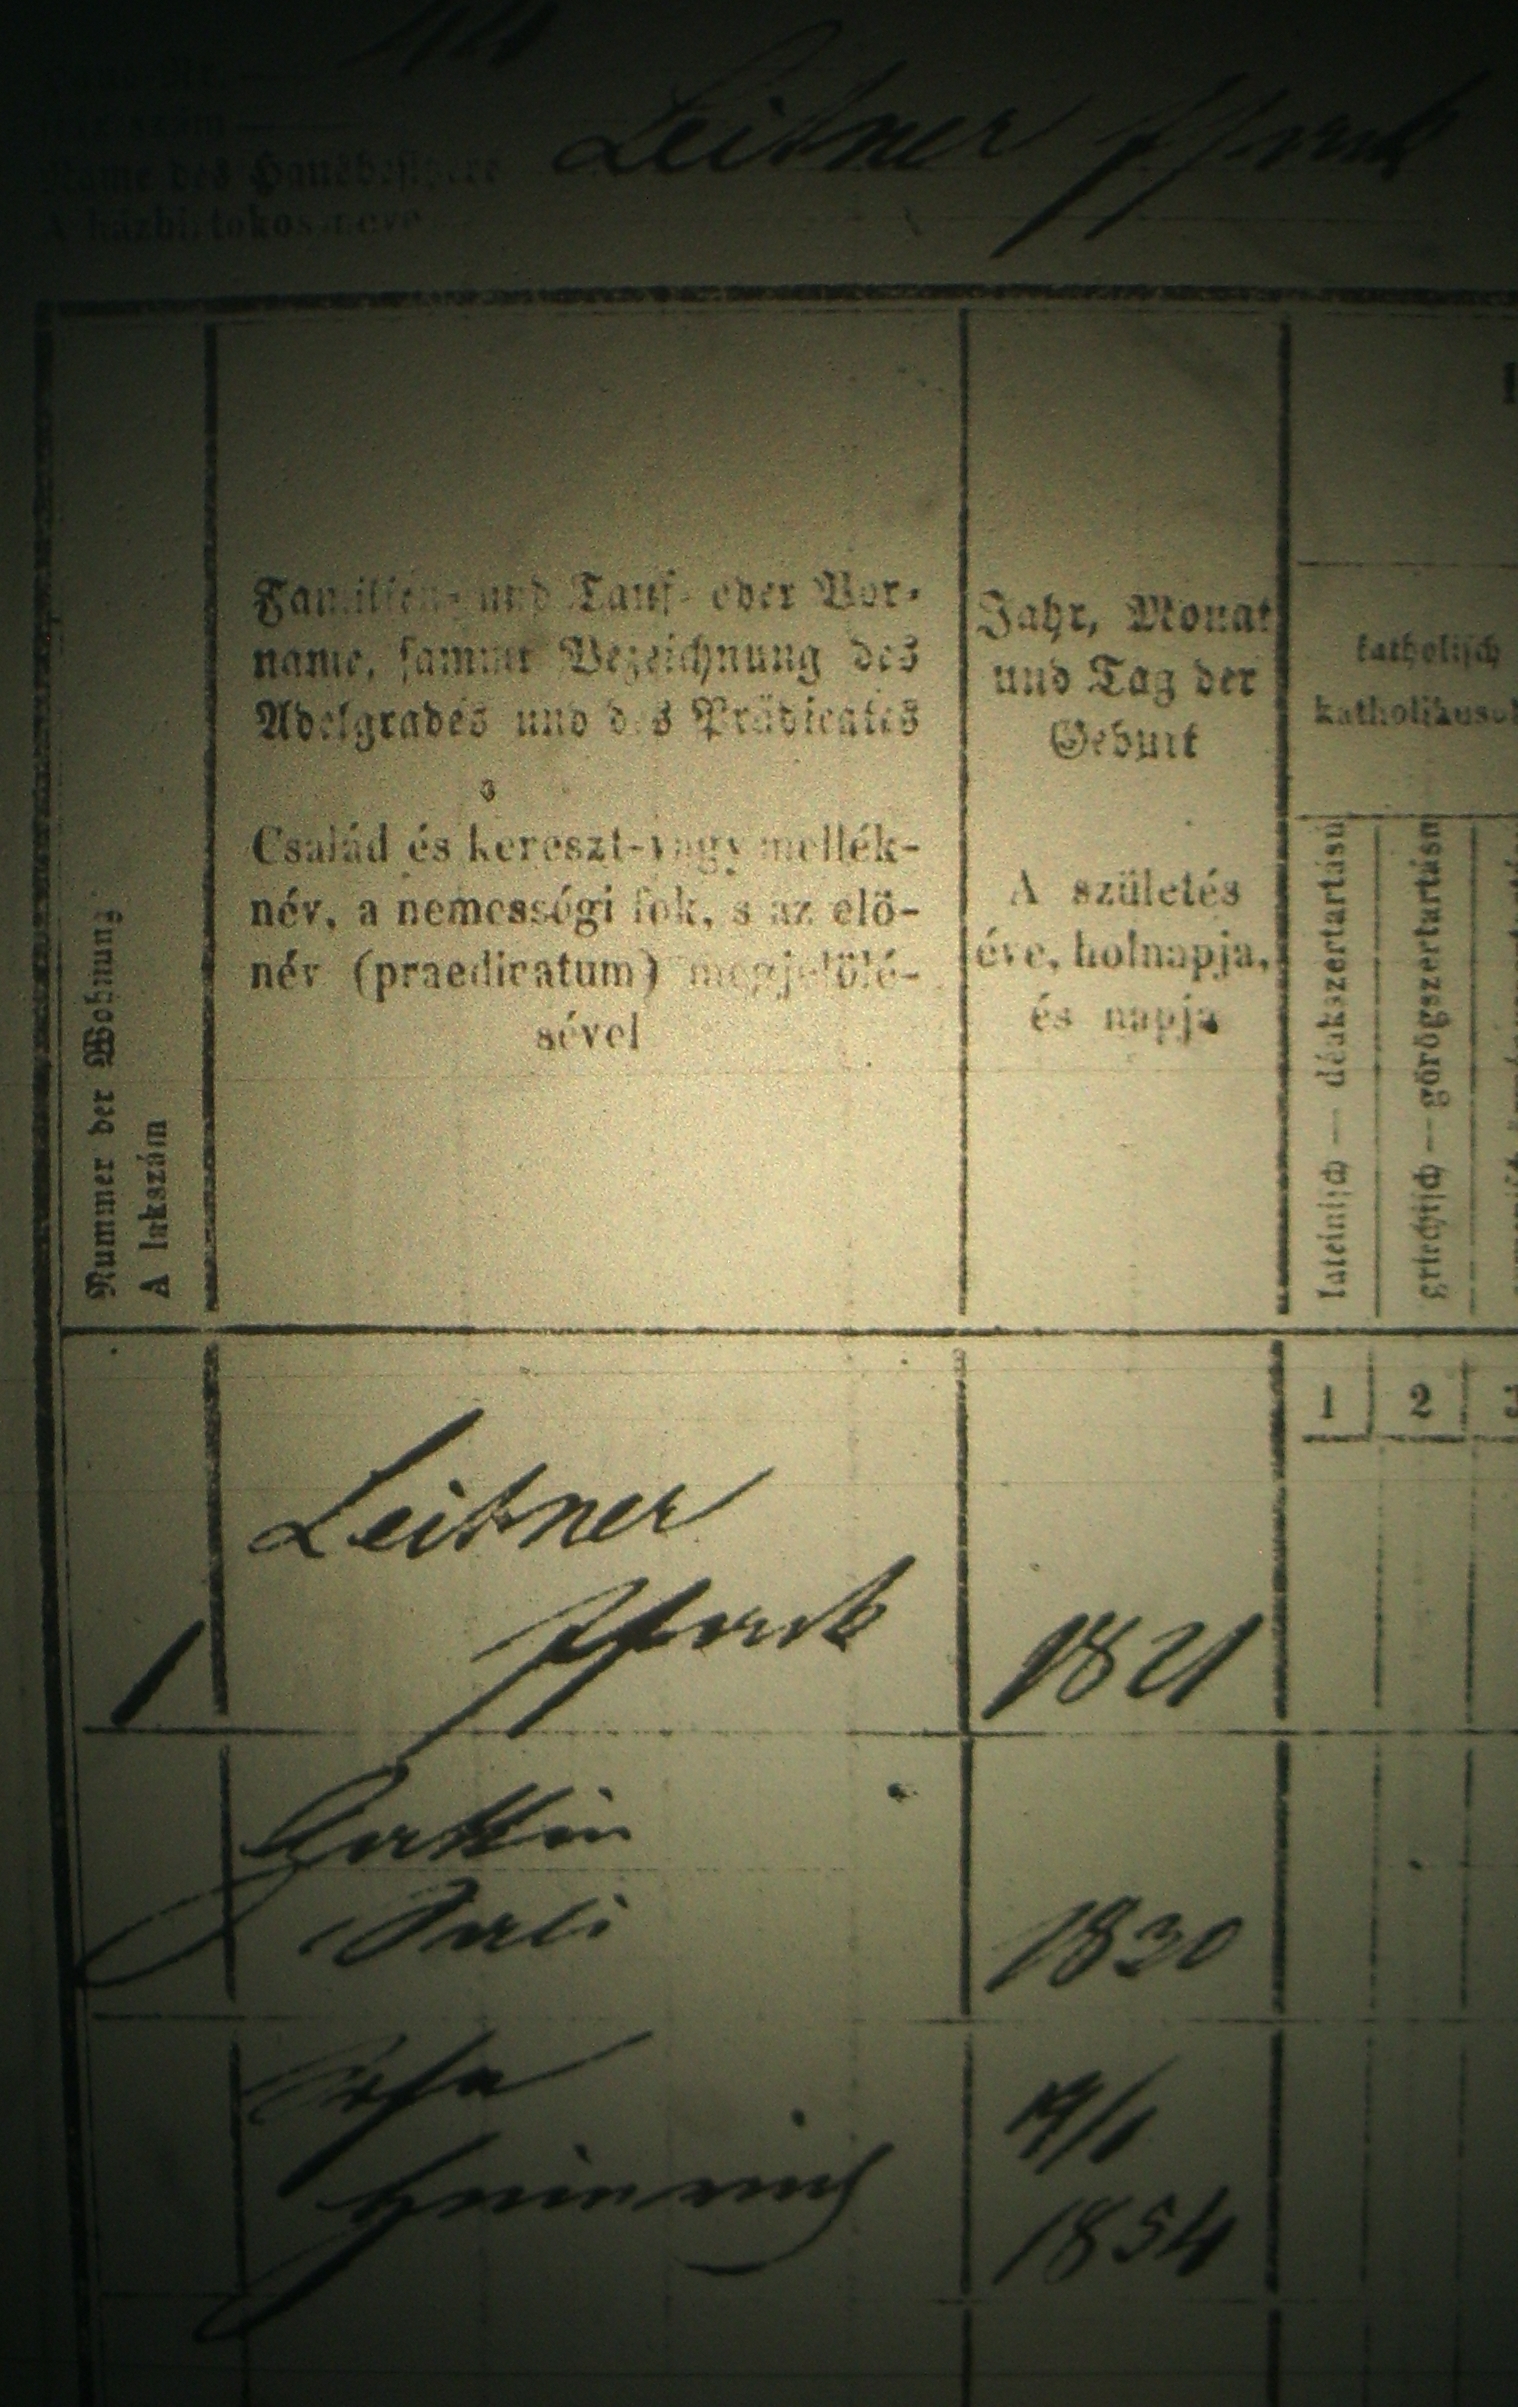 Haus-Nr.
Ház szám
Name des Hausbesitzers
A házbirtokos neve
Leitner
Nummer der Wohnung
A lakszám
Familien- und Tauf- oder Vor-
name, sammt Bezeichnung des
Adelgrades und des Prädicates
Család és kereszt-vagy mellék-
név, a nemességi fok, s az elö-
név (praedicatum) megjelölé-
sével
Jahr, Monat
und Tag der
Geburt
A születés
éve, holnapja,
és napja
katholisch
lateinisch — déakszertartásu
griechisch — görögszertartásu
1 2
Leitner
1 1821
Gattin
1830
Heinrich
1854